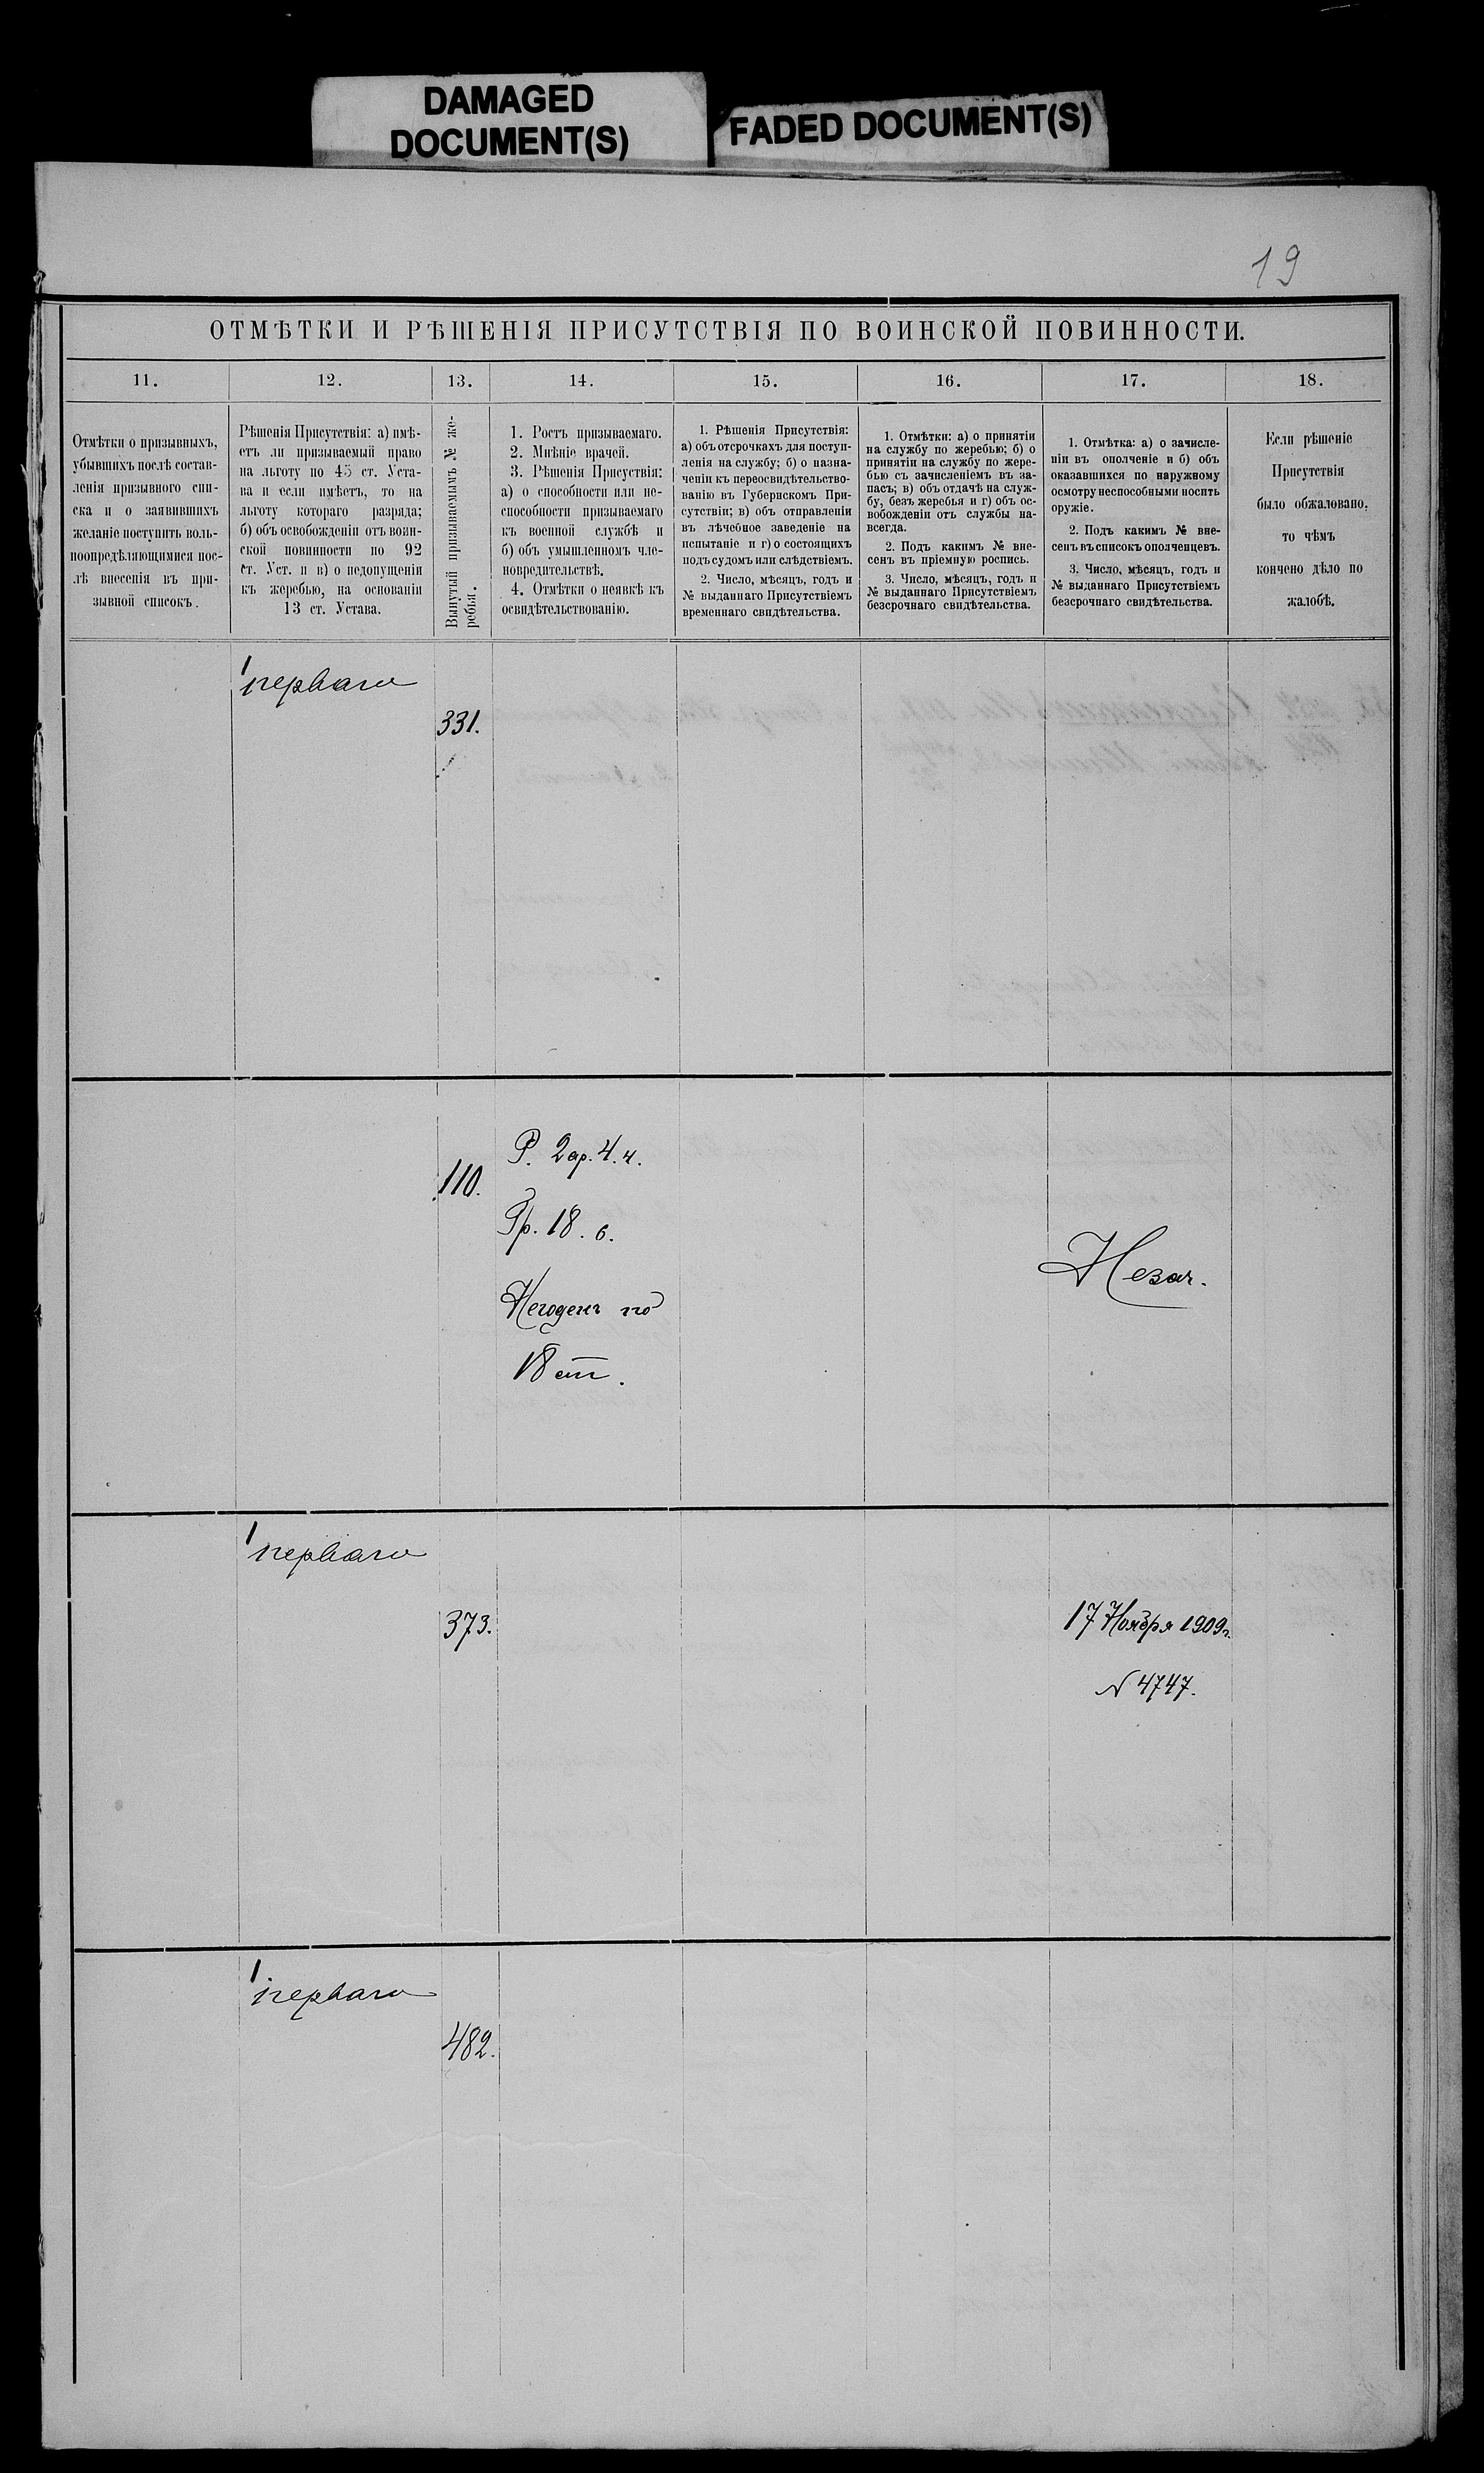 DAMAGED
DOCUMENT(S)
FADED DOCUMENT(S)
19
ОТМѢТКИ И РѢШЕНІЯ ПРИСУТСТВІЯ ПО ВОИНСКОЙ ПОВИННОСТИ.
11.
12.
13.
14.
15.
16.
17.
18.
Отмѣтки о призывныхъ,
убывшихъ послѣ состав-
ленія призывного спи-
ска и о заявившихъ
желаніе поступить воль-
ноопредѣляющимися пос-
лѣ внесенія въ при-
зывной списокъ.
Рѣшенія Присутствія: а) имѣ-
етъ ли призываемый право
на льготу по 45 ст. Уста-
ва и если имѣетъ, то на
льготу котораго разряда;
б) объ освобожденіи отъ воин-
ской повинности по 92
ст. Уст. и в) о недопущеніи
къ жеребью, на основаніи
13 ст. Устава.
Вынутый призываемымъ № же-
ребья.
1. Ростъ призываемаго.
2. Мнѣніе врачей.
3. Рѣшенія Присуствія:
а) о способности или не-
способности призываемаго
къ военной службѣ и
б) объ умышленномъ чле-
новредительствѣ.
4. Отмѣтки о неявкѣ къ
освидѣтельствованію.
1. Рѣшенія Присутствія:
а) объ отсрочкахъ для поступ-
ленія на службу; б) о назна-
ченіи къ переосвидѣтельство-
ванію въ Губернскомъ При-
сутствіи; в) объ отправленіи
въ лѣчебное заведеніе на
испытаніе и г) о состоящихъ
подъ судомъ или слѣдствіемъ.
2. Число, мѣсяцъ, годъ и
№ выданнаго Присутствіемъ
временнаго свидѣтельства.
1. Отмѣтки: а) о принятіи
на службу по жеребью; б) о
принятіи на службу по жере-
бью съ зачисленіемъ въ за-
пасъ; в) объ отдачѣ на служ-
бу, безъ жеребья и г) объ ос-
вобожденіи отъ службы на-
всегда.
2. Подъ какимъ № вне-
сенъ въ пріемную роспись.
3. Число, мѣсяцъ, годъ и
№ выданнаго Присутствіемъ
безсрочнаго свидѣтельства.
1. Отмѣтка: а) о зачисле-
ніи въ ополченіе и б) объ
оказавшихся по наружному
осмотру неспособными носить
оружіе.
2. Подъ какимъ № вне-
сенъ въ списокъ ополченцевъ.
3. Число, мѣсяцъ, годъ и
№ выданнаго Присутствіемъ
безсрочнаго свидѣтельства.
Если рѣшеніе
Присутствія
было обжаловано,
то чѣмъ
кончено дѣло по
жалобѣ.
1
перваго
331.
110.
Р. 2 ар. 4. ч.
Гр. 18. в.
Негоденъ по
18 ст.
Незач.
1
перваго
373.
17 Ноября 1909 г.
№ 4747.
1
перваго
482.